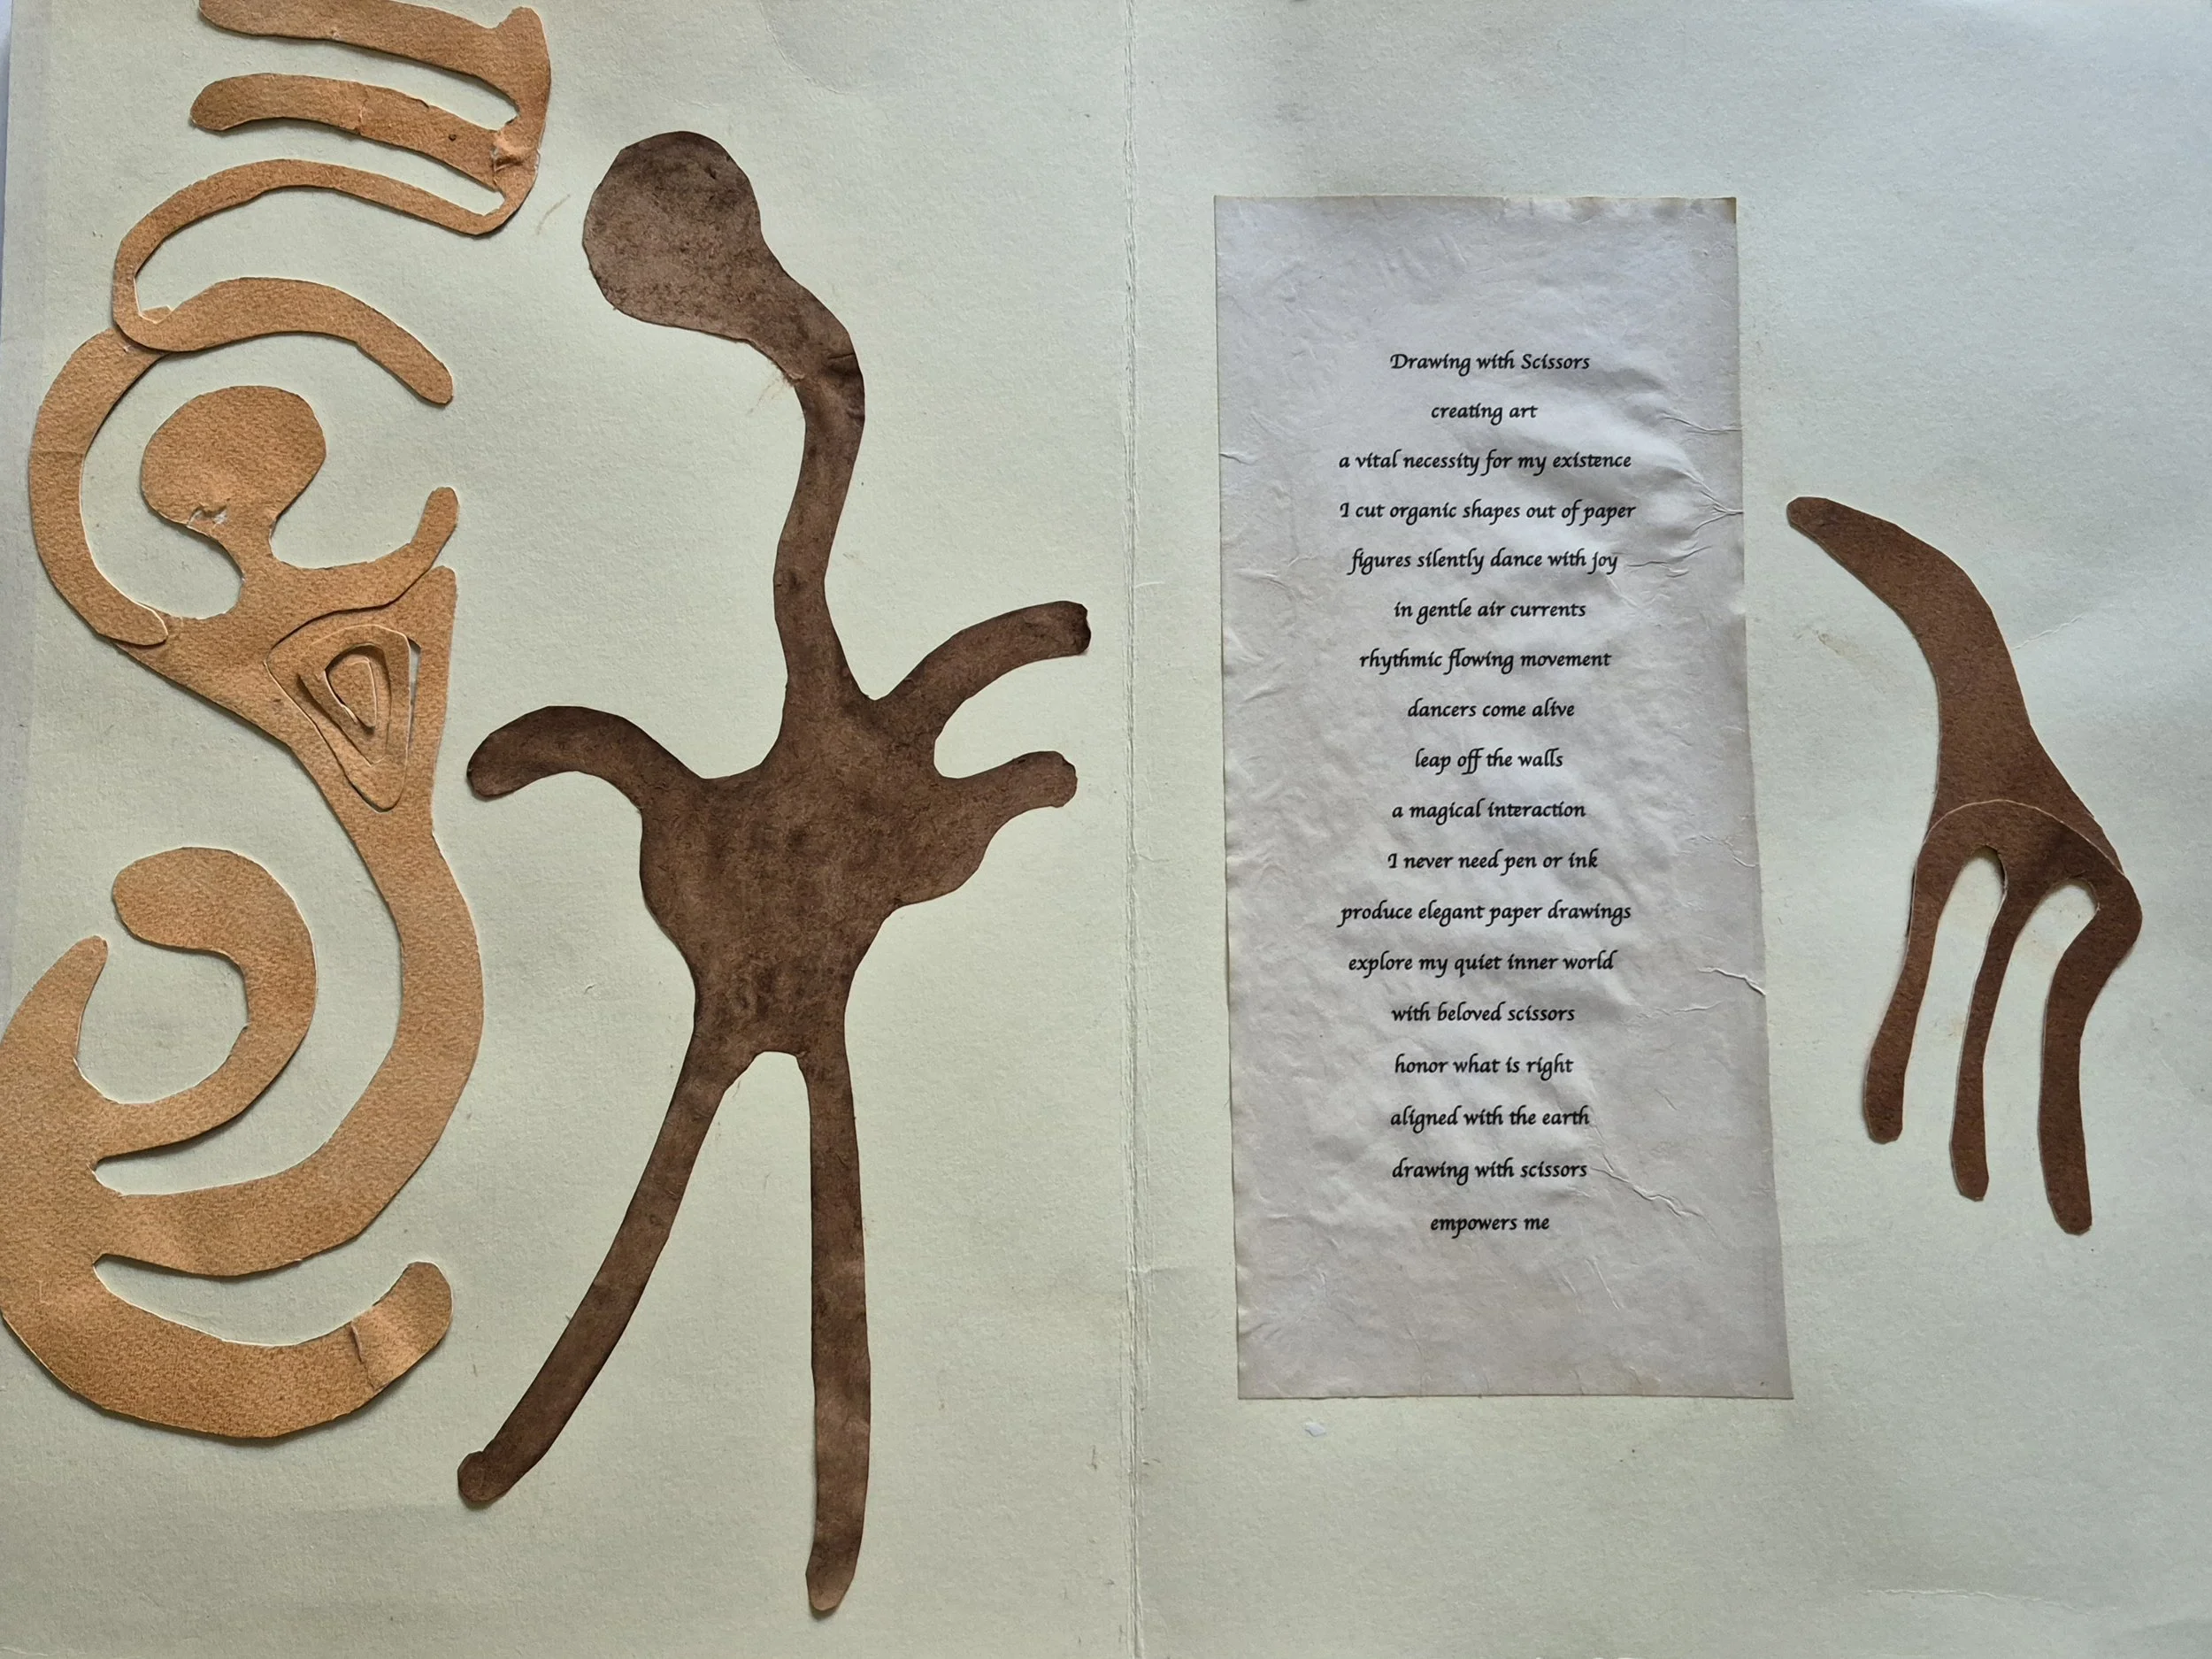 Drawing with Scissors
creating art
a vital necessity for my existence
I cut organic shapes out of paper
figures silently dance with joy
in gentle air currents
rhythmic flowing movement
dancers come alive
leap off the walls
a magical interaction
I never need pen or ink
produce elegant paper drawings
explore my quiet inner world
with beloved scissors
honor what is right
aligned with the earth
drawing with scissors
empowers me